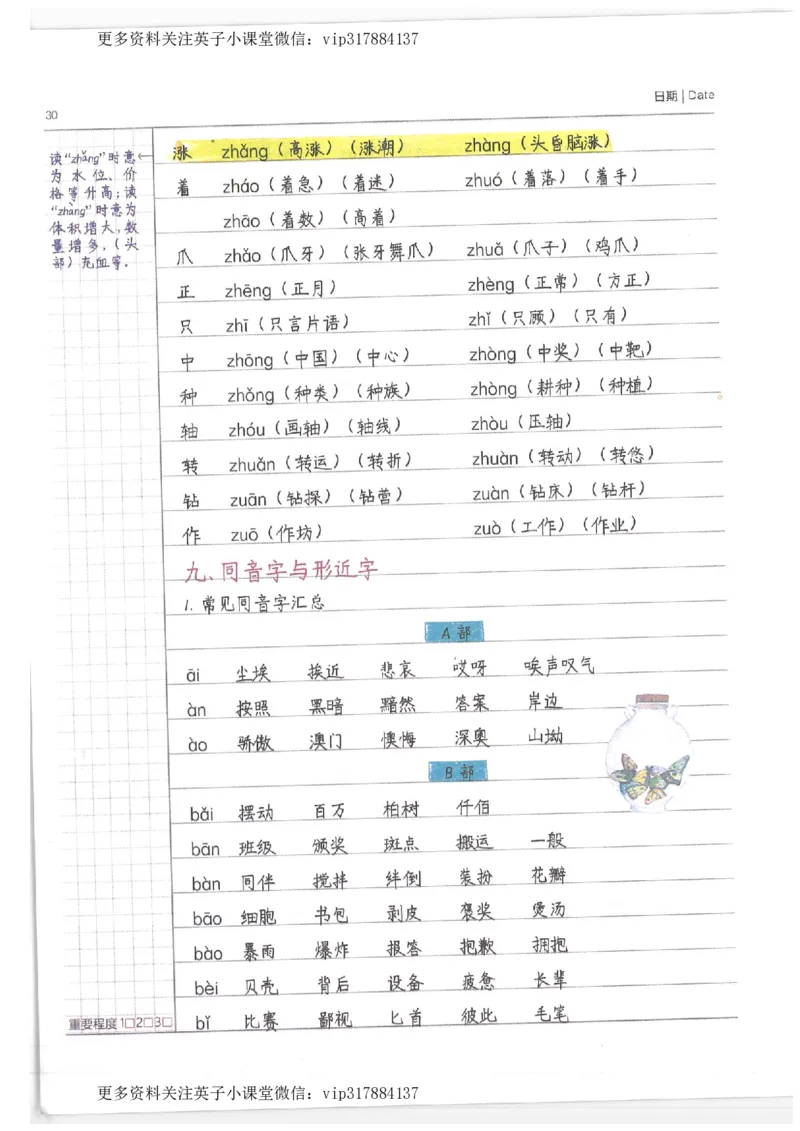 更多资料关注英子小课堂微信：vip317884137
日期 | Date
30
读“zhǎng”时意←
为水位、价
格等升高；读
“zhàng”时意为
体积增大，数
量增多，（头
部）充血等。
涨 zhǎng（高涨）（涨潮） zhàng（头昏脑涨）
着 zháo（着急）（着迷） zhuó（着落）（着手）
zhāo（着数）（高着）
爪 zhǎo（爪牙）（张牙舞爪） zhuǎ（爪子）（鸡爪）
正 zhēng（正月） zhèng（正常）（方正）
只 zhī（只言片语） zhǐ（只顾）（只有）
中 zhōng（中国）（中心） zhòng（中奖）（中靶）
种 zhǒng（种类）（种族） zhòng（耕种）（种植）
轴 zhóu（画轴）（轴线） zhòu（压轴）
转 zhuǎn（转运）（转折） zhuàn（转动）（转悠）
钻 zuān（钻探）（钻营） zuàn（钻床）（钻杆）
作 zuō（作坊） zuò（工作）（作业）
九、同音字与形近字
1. 常见同音字汇总
A部
āi 尘埃 挨近 悲哀 哎呀 唉声叹气
àn 按照 黑暗 黯然 答案 岸边
ào 骄傲 澳门 懊悔 深奥 山坳
B部
bǎi 摆动 百万 柏树 仟佰
bān 班级 颁奖 斑点 搬运 一般
bàn 同伴 搅拌 绊倒 装扮 花瓣
bāo 细胞 书包 剥皮 褒奖 煲汤
bào 暴雨 爆炸 报答 抱歉 拥抱
bèi 贝壳 背后 设备 疲惫 长辈
bǐ 比赛 鄙视 匕首 彼此 毛笔
重要程度 1□2□3□
更多资料关注英子小课堂微信：vip317884137